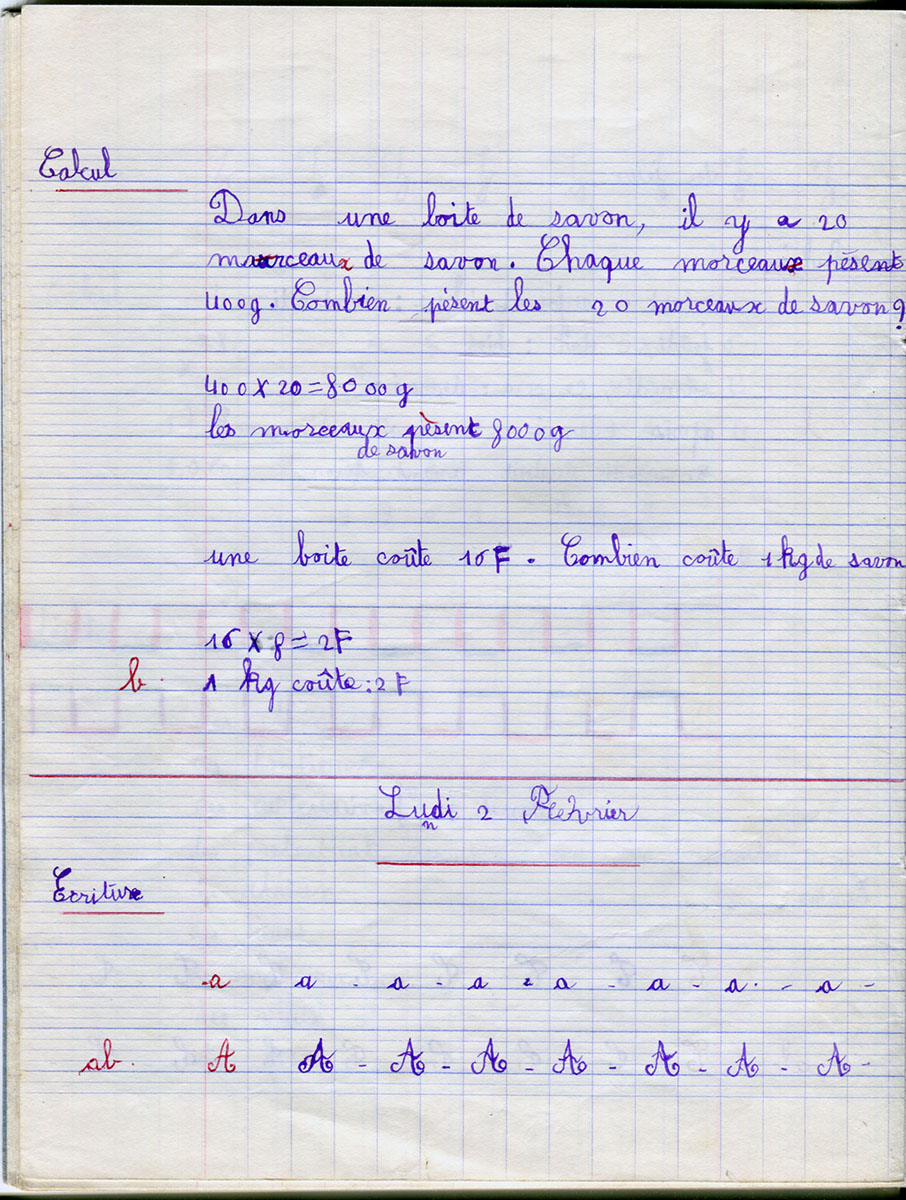 Calcul
Dans une boite de savon, il y a 20
morceaux de savon. Chaque morceaux pèsent
400g. Combien pèsent les 20 morceaux de savon?
400 x 20 = 8000g
les morceaux pèsent 8000g
de savon
une boite coûte 16F. Combien coûte 1 kg de savon
16 x 8 = 2F
b. 1 kg coûte: 2F
Ludi 2
n
Ecriture
a a - a - a - a - a - a - a -
ab. A A - A - A - A - A - A - A -